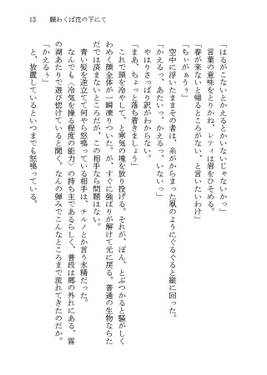 13　願わくば花の下にて
「はるがこないとかえるとかいないじゃないか。」
　言葉の意味をとりかねて、レティは眉をひそめる。
「春が来ないと帰るところがない、と言いたいわけ」
「ちがぁう。かえるぅ」
　空中に浮いたままその者は、糸がからまった凧のようにぐるぐると縦に回った。
「かえるっ、あたいっ、かえるっ、いないっ」
　やはりさっぱり訳がわからない。
「まあ、ちょっと落ち着きましょう」
　これで頭を冷やして、と寒気の塊を放り投げる。それが、ぽん、とぶつかると騒がしく
わめく顔全体が一瞬凍りついた。が、すぐに強ばりが解けて元に戻る。普通の生物なら
ただでは済まないところだが、この相手なら問題はない。
　青い髪を振り乱して何やら怒鳴っている相手は、チルノとか言う氷精だった。
　なんでも〈冷気を操る程度の能力〉の持ち主であるらしく、普段は郷の外れにある、霧
の湖あたりで遊び惚けているのに、なんの弾みでこんなところまで流れてきたのだか。
「かえるぅ」
と、放置しているといつまでも怒鳴っている。